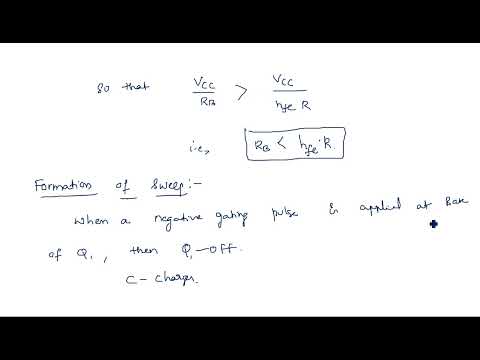 so that V_CC / R_B > V_CC / h_fe R
i.e., R_B < h_fe . R.
Formation of Sweep :-
When a negative gating pulse is applied at Base
of Q1, then Q1 - OFF.
C - charges.